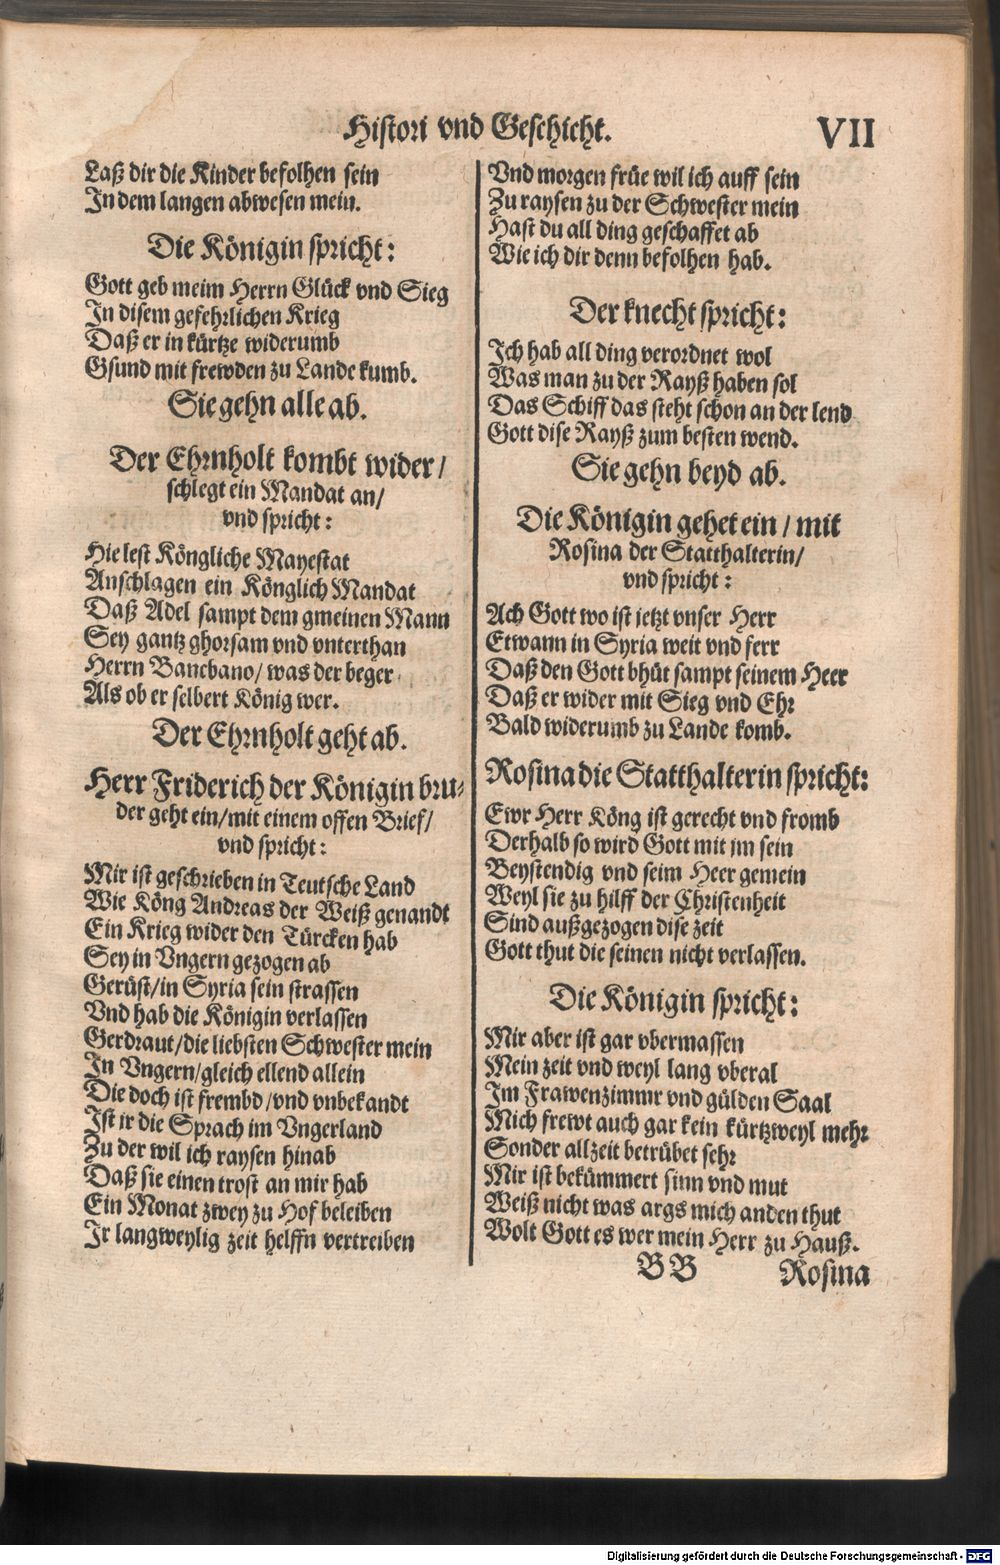 Histori vnd Geschicht. VII
Laß dir die Kinder befolhen sein
In dem langen abwesen mein.
Die Königin spricht:
Gott geb meim Herrn Glück vnd Sieg
In disem gefehrlichen Krieg
Daß er in kürtze widerumb
Gsund mit frewden zu Lande kumb.
Sie gehn alle ab.
Der Ehrnholt kombt wider/
schlegt ein Mandat an/
vnd spricht:
Hie lest Köngliche Mayestat
Anschlagen ein Könglich Mandat
Daß Adel sampt dem gmeinen Mann
Sey gantz ghorsam vnd vnterthan
Herrn Bancbano/ was der beger
Als ob er selbert König wer.
Der Ehrnholt geht ab.
Herr Friderich der Königin bru-
der geht ein/mit einem offen Brief/
vnd spricht:
Mir ist geschrieben in Teutsche Land
Wie Köng Andreas der Weiß genandt
Ein Krieg wider den Türcken hab
Sey in Vngern gezogen ab
Gerüst/in Syria sein strassen
Vnd hab die Königin verlassen
Gerdraut/die liebsten Schwester mein
In Vngern/gleich ellend allein
Die doch ist frembd/vnd vnbekandt
Ist ir die Sprach im Vngerland
Zu der wil ich raysen hinab
Daß sie einen trost an mir hab
Ein Monat zwey zu Hof beleiben
Ir langweylig zeit helffn vertreiben
Vnd morgen früe wil ich auff sein
Zu raysen zu der Schwester mein
Hast du all ding geschaffet ab
Wie ich dir denn befolhen hab.
Der knecht spricht:
Ich hab all ding verordnet wol
Was man zu der Rayß haben sol
Das Schiff das steht schon an der lend
Gott dise Rayß zum besten wend.
Sie gehn beyd ab.
Die Königin gehet ein/ mit
Rosina der Statthalterin/
vnd spricht:
Ach Gott wo ist jetzt vnser Herr
Etwann in Syria weit vnd ferr
Daß den Gott bhüt sampt seinem Heer
Daß er wider mit Sieg vnd Ehr
Bald widerumb zu Lande komb.
Rosina die Statthalterin spricht:
Ewr Herr Köng ist gerecht vnd fromb
Derhalb so wird Gott mit im sein
Beystendig vnd seim Heer gemein
Weyl sie zu hilff der Christenheit
Sind außgezogen dise zeit
Gott thut die seinen nicht verlassen.
Die Königin spricht:
Mir aber ist gar vbermassen
Mein zeit vnd weyl lang vberal
Im Frawenzimmr vnd gülden Saal
Mich frewt auch gar kein kürtzweyl mehr
Sonder allzeit betrübet sehr
Mir ist bekümmert sinn vnd mut
Weiß nicht was args mich anden thut
Wolt Gott es wer mein Herr zu Hauß.
BB Rosina
Digitalisierung gefördert durch die Deutsche Forschungsgemeinschaft - DFG